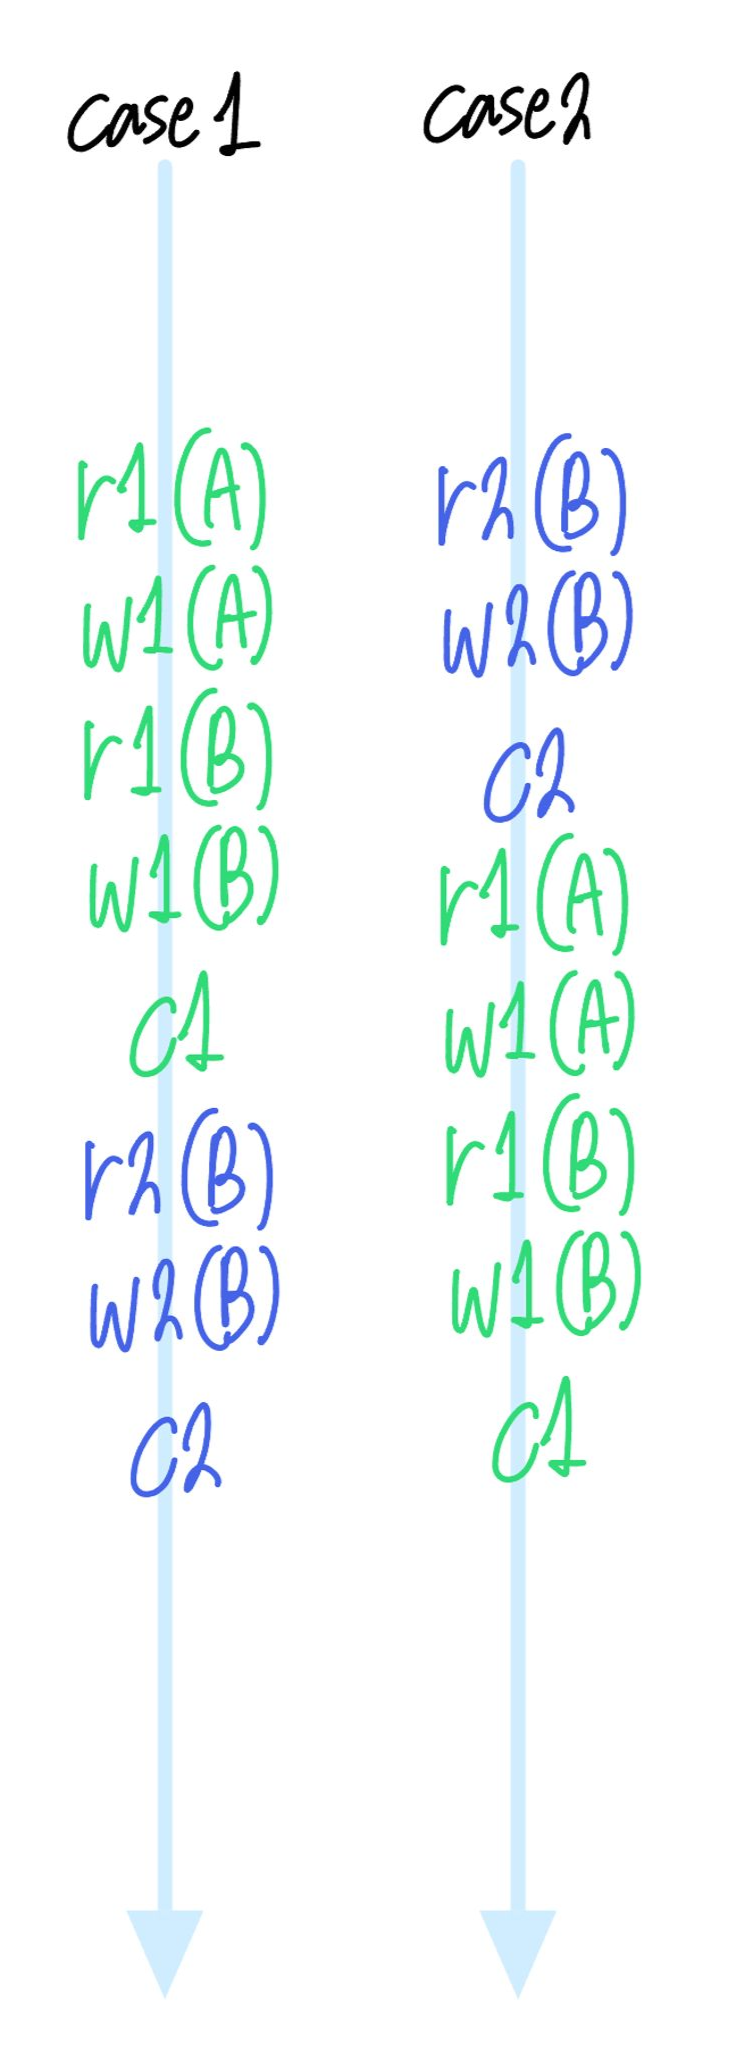 case 1
r1(A)
w1(A)
r1(B)
w1(B)
c1
r2(B)
w2(B)
c2
case2
r2(B)
w2(B)
c2
r1(A)
w1(A)
r1(B)
w1(B)
c1